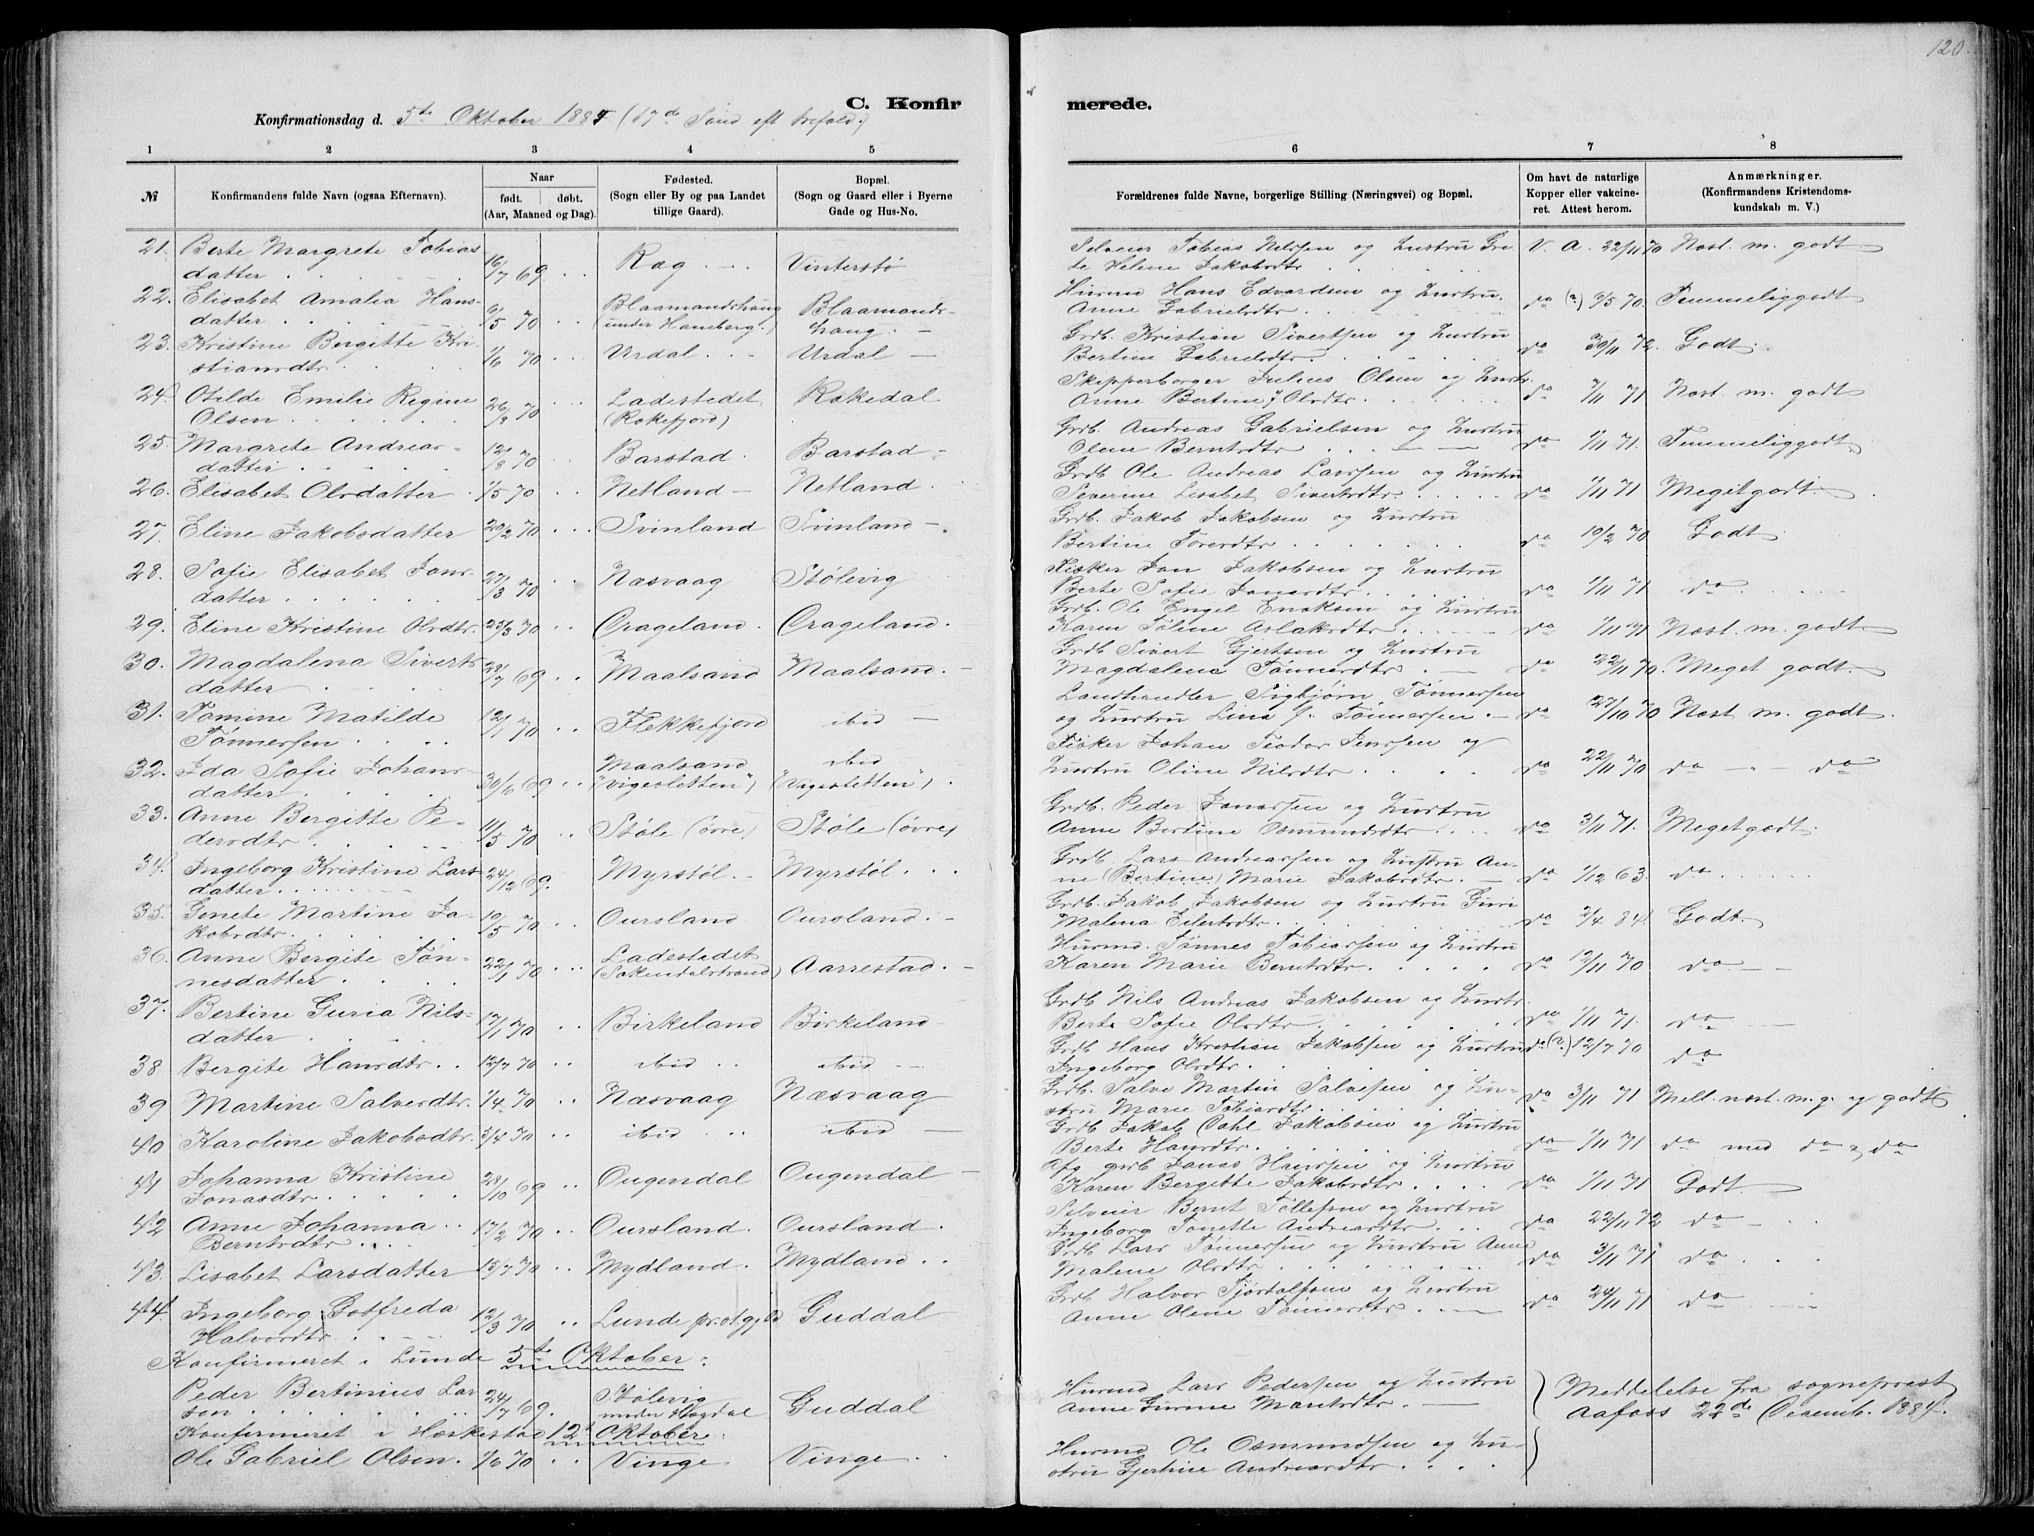 120.
C. Konfir
merede.
Konfirmationsdag d. 5te Oktober 1884 (17de Sønd eft trefold.)
1 2 3 4 5
6 7 8
№ Konfirmandens fulde Navn (ogsaa Efternavn). Naar født. døbt. (Aar, Maaned og Dag). Fødested. (Sogn eller By og paa Landet tillige Gaard). Bopæl. (Sogn og Gaard eller i Byerne Gade og Hus-No.
Forældrenes fulde Navne, borgerlige Stilling (Næringsvei) og Bopæl. Om havt de naturlige Kopper eller vakcineret. Attest herom. Anmærkninger. (Konfirmandens Kristendomskundskab m. V.)
21. Berte Margrete Tobias
datter 16/7 69 Rag Vinterstø
Selveier Tobias Nilssen og Hustru Gre
te Helene Jakobsdtr V. A. 22/11 70 Næst. m. godt
22. Elisabet Amalia Hans-
datter 6/5 70 Blaamandshaug (under Haneberg) Blaamands-
haug.
Husmd Hans Edvardsen og Hustru.
Anne Gabrielsdtr do (?) 3/5 70. Temmelig godt
23. Kristine Bergitte Kri-
stiansdtr. 1/6 70 Urdal Urdal
Grdb. Kristian Sivertsen og Hustru
Bertine Gabrielsdtr do 30/11 72. Godt.
24. Otilde Emilie Regine
Olsen 26/8 70 Ladestedet (Rekefjord) Rekedal
Skipperborger Julius Olsen og Hustr.
Anne Bertine Olsdtr do 7/11 71 Næst. m. godt
25. Margrete Andreas-
datter 12/8 70 Barstad Barstad
Grdb. Andreas Gabrielsen og Hustru
Olene Berntsdtr do 1/11 71. Temmelig godt
26. Elisabet Olsdatter 1/5 70 Netland Netland
Grdb Ole Andreas Larssen og Hustru
Severine Lisabet Sivertsdtr do 1/11 71 Meget godt.
27. Eline Jakobsdatter 20/2 70 Svinland Svinland
Grdb. Jakob Jakobsen og Hustru
Bertine Toresdtr do 10/2 70 Godt
28. Sofie Elisabet Jons-
datter 27/3 70 Næsvaag Stølevig
Fisker Jon Jakobsen og Hustru
Berte Sofie Jonasdtr do 1/11 71 do
29. Eline Kristine Olsdtr. 25/3 70 Crageland. Crageland.
Grdb. Ole Engel Enoksen og Hustru
Karen Tolene Aslaksdtr do 1/11 71 Næst. m. godt.
30. Magdalena Siverts
datter 28/7 69 Maalsand Maalsand.
Grdb Sivert Gjertsen og Hustru
Magdalena Tønnesdtr do 22/11 70. Meget godt.
31. Tomine Matilde
Tønnessen 12/1 70 Flekkefjord ibid
Landhandler Sigbjørn Tønnessen
og Hustru Lina f. Tønnessen. do 27/10 70 Næst m. godt.
32. Ida Sofie Johans-
datter 30/6 69 Maalsand ("Vigesletten") ibid ("Vigesletten").
Fisker Johan Teodor Jenssen og
Hustru Oline Nilsdtr do 22/11 70 do do
33. Anne Bergitte Pe-
dersdtr. 11/5 70 Støle (øvre) Støle (øvre)
Grdb. Peder Jonassen og Hustru
Anne Bertine Osmundsdtr do 3/11 71. Meget godt.
34. Ingeborg Kristine Lars-
datter 24/12 69. Myrstøl. Myrstøl
Grdb. Lars Andreassen og Hustru An-
ne (Bertine) Marie Jakobsdtr. do 1/12 63 do
35. Genete Martine Ja-
kobsdtr. 10/5 70 Oursland Oursland.
Grdb. Jakob Jakobsen og Hustru Guri
Malena Eilertsdtr. do 2/4 84. Godt.
36. Anne Bergite Tøn-
nesdatter 22/1 70 Ladestedet (Sokendalstrand) Aarrestad.
Husmd. Tønnes Tobiassen og Hustru
Karen Marie Berntsdtr do 12/11 70 do
37. Bertine Guria Nils-
datter 17/1 70 Birkeland Birkeland
Grdb Nils Andreas Jakobsen og Hustr.
Berte Sofie Olsdtr do 1/11 71. do
38 Bergite Hansdtr 12/7 70 ibid ibid
Grdb Hans Kristian Jakobsen og Hustru
Ingeborg Olsdtr. do (?) 12/7 70 do
39 Martine Salvesdtr. 1/4 70 Næsvaag Næsvaag
Grdb. Salve Martin Salvesen og Hu-
stru Marie Tobiasdtr. do 3/11 71 Mell. næst. m. g. og godt.
40 Karoline Jakobsdtr. 3/4 70 ibid ibid
Grdb Jakob Carl Jakobsen og Hustru
Berte Hansdtr. do 1/11 71 do med do & do
41 Johanna Kristine
Jonasdtr 28/10 69 Ougendal Ougendal
Afg grdb Jonas Hanssen og Hustru
Karen Bergitte Jakobsdtr. do 1/11 71 Godt.
42 Anne Johanna
Berntsdtr 17/2 70 Oursland. Oursland.
Selveier Bernt Tollefsen og Hustru
Ingeborg Tonette Andreasdtr do 22/11 72 do
43. Lisabet Larsdatter 15/7 70 Mydland. Mydland
Grdb Lars Tønnessen og Hustru Anne
Malene Olsdtr do 3/11 71 do
44 Ingeborg Gotfreda
Halvorsdtr 12/3 70 Lunde prstgjld Guddal
Grdb Halvor Tjøstolfsen og Hustru
Anne Olene Tønnesdtr do 24/11 71 do
Konfirmeret i Lunde 5te Oktober:
Peder Bertinius Lar
sen 24/7 69. Stølevig under Hegdal Guddal
Husmd Lars Pedersen og Hustru
Anne Gurine Maritsdtr. Meddelelse fra sogneprest
Aafoss 22de Decemb. 1884.
Konfirmeret i Heskestad 12te Oktober:
Ole Gabriel Olsen. 1/6 70 Vinge Vinge
Husmd Ole Osmundsen og Hu-
stru Gjertine Andreasdtr.